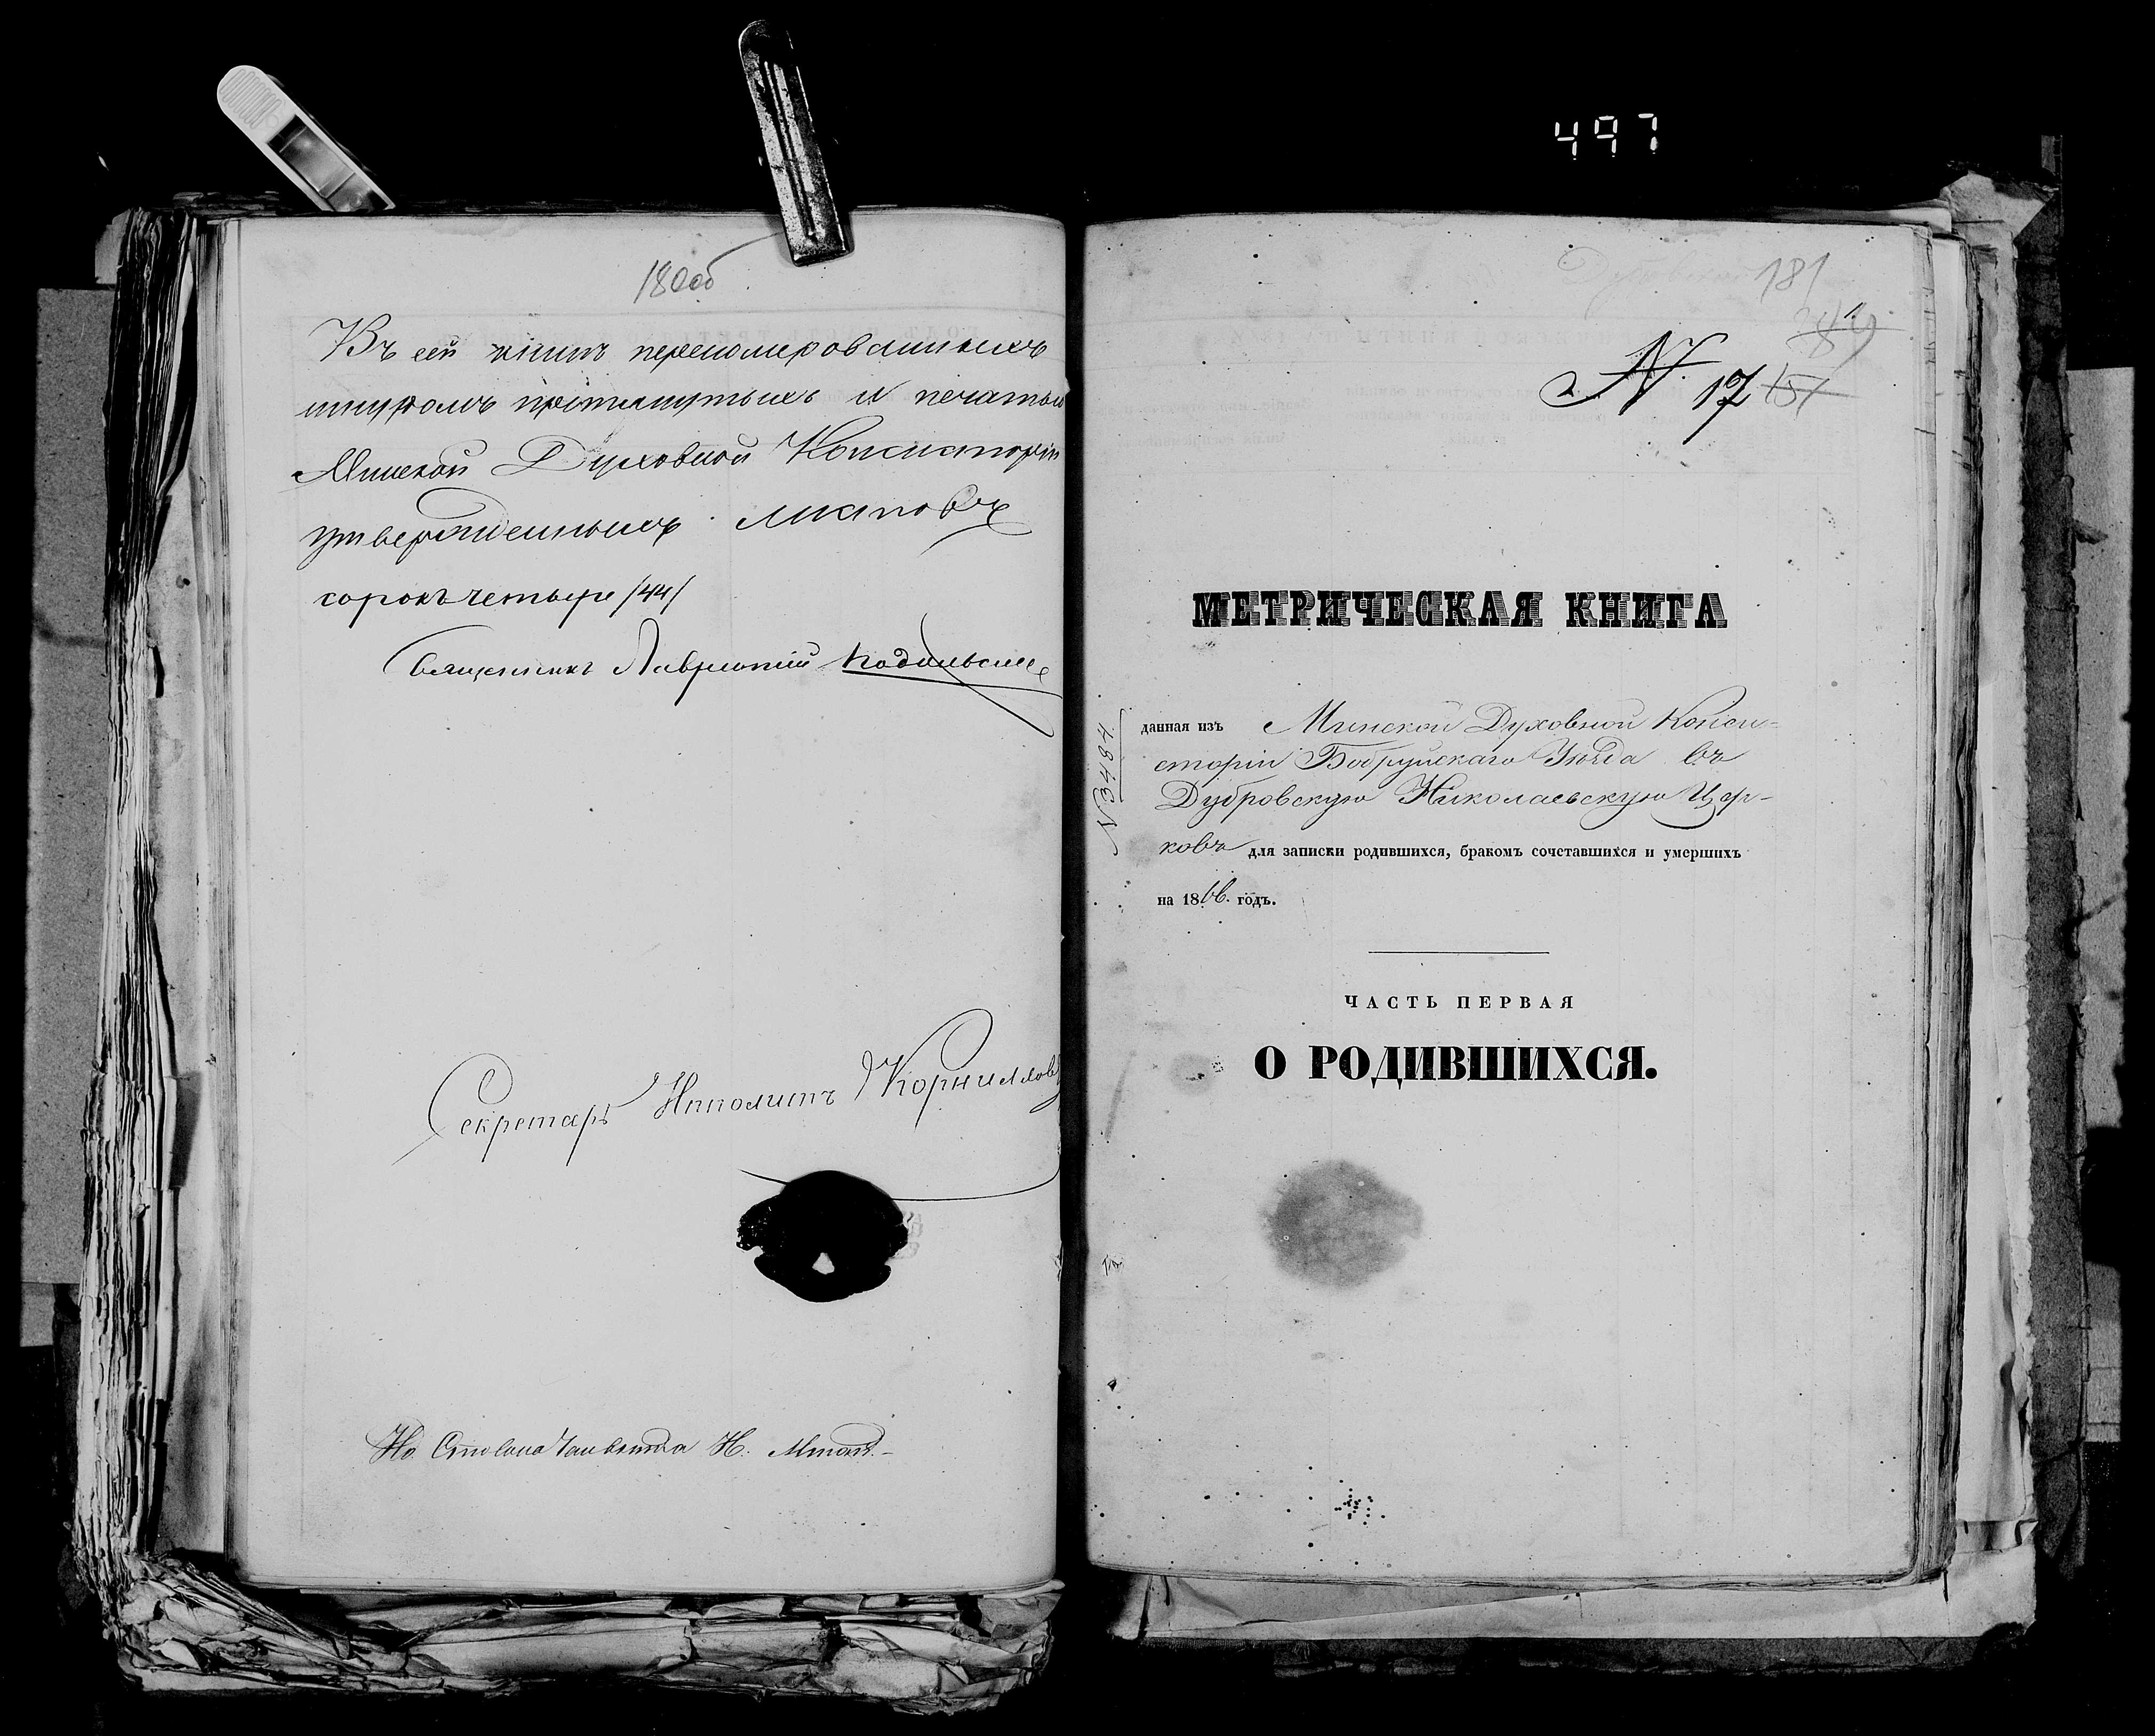 497
180об
Въ сей книгѣ перенумерованныхъ
шнуромъ протянутыхъ и печатью
Минской Духовной Консисторіи
утвержденныхъ листовъ
сорокъ четыре /44/
Священникъ Лаврентій
Секретарь Ипполитъ Корниллов
181
N. 17 151
МЕТРИЧЕСКАЯ КНИГА
N 3484.
данная изъ Минской Духовной Конси-
сторіи Бобруйскаго Уѣзда въ
Дубровскую Николаевскую Цер-
ковь для записки родившихся, бракомъ сочетавшихся и умершихъ
на 1866. годъ.
ЧАСТЬ ПЕРВАЯ
О РОДИВШИХСЯ.